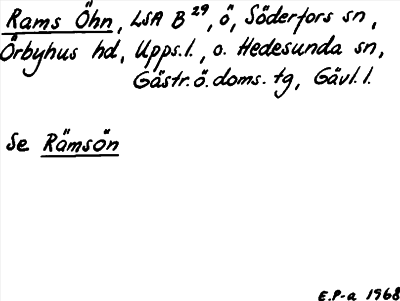 Rams Öhn, LSA B²⁹, ö, Söderfors sn,
Örbyhus hd, Upps.l., o. Hedesunda sn,
Gästr. ö. doms. tg, Gävl.l.
Se Rämsön
E.P-a 1968